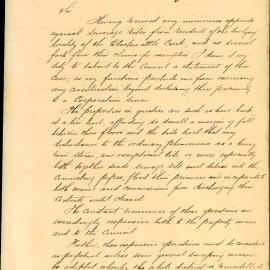 Sir
Having received very numerous appeals
against Sewerage Rates from residents of the low lying
locality of the Blackwattle Creek, and as several
have their claims for exemption I deem it my
duty to submit to the Council a statement of their
Case, as my functions preclude me from exercising
any consideration beyond declaring their proximity
to a Corporation Sewer
The properties in question are such as have back
at a low level, affording so small a margin of fall
between their floors and the tide level that any
disturbance to the ordinary phenomena as a heavy
rain storm, an exceptional tide or worse especially
both together send sewage silt and debris out the
Connecting pipes, flood their premises and incapacitate
both mains and connexions from discharging their
Contents until cleared
The constant recurrence of these operations are
exceedingly expensive both to the property owner
and to the Council
Further, these expensive operations must be
as perpetual unless some general sweeping measure
be adopted whereby the whole district is remodelled